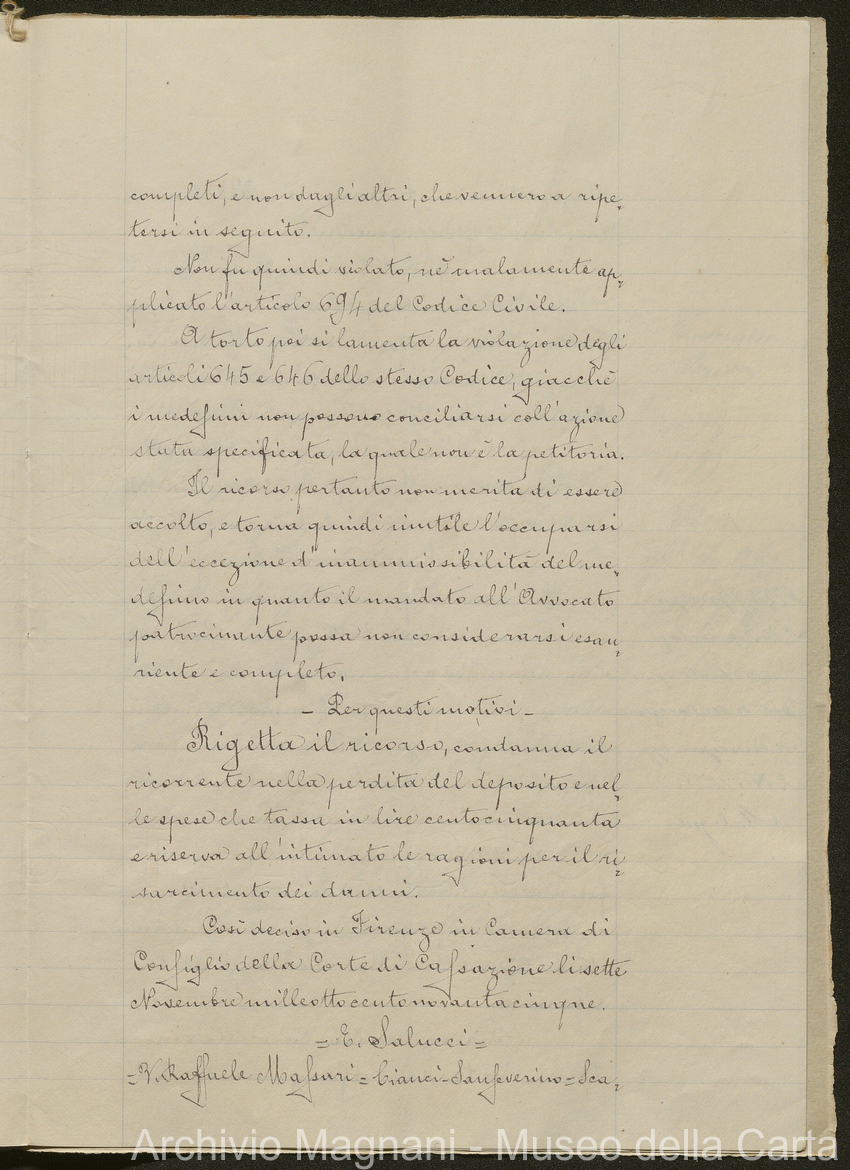 completi, e non dagli altri, che vennero a ripe=
tersi in seguito.
Non fu quindi violato, nè malamente ap=
plicato l'articolo 694 del Codice Civile.
A torto poi si lamenta la violazione degli
articoli 645 e 646 dello stesso Codice, giacchè
i medesimi non possono conciliarsi coll'azione
stata specificata, la quale non è la petitoria.
Il ricorso pertanto non merita di essere
accolto, e torna quindi inutile l'occuparsi
dell'eccezione d'inammissibilità del me=
desimo in quanto il mandato all'Avvocato
patrocinante possa non considerarsi esau=
riente e completo.
- Per questi motivi -
Rigetta il ricorso, condanna il
ricorrente nella perdita del deposito e nel=
le spese che tassa in lire centocinquanta
e riserva all'intimato le ragioni per il ri=
sarcimento dei danni.
Così deciso in Firenze in Camera di
Consiglio della Corte di Cassazione li sette
Novembre milleottocentonovantacinque.
= E. Salucci =
= V. Raffaele Massari = Cianci-Sanseverino = Sca=
Archivio Magnani - Museo della Carta